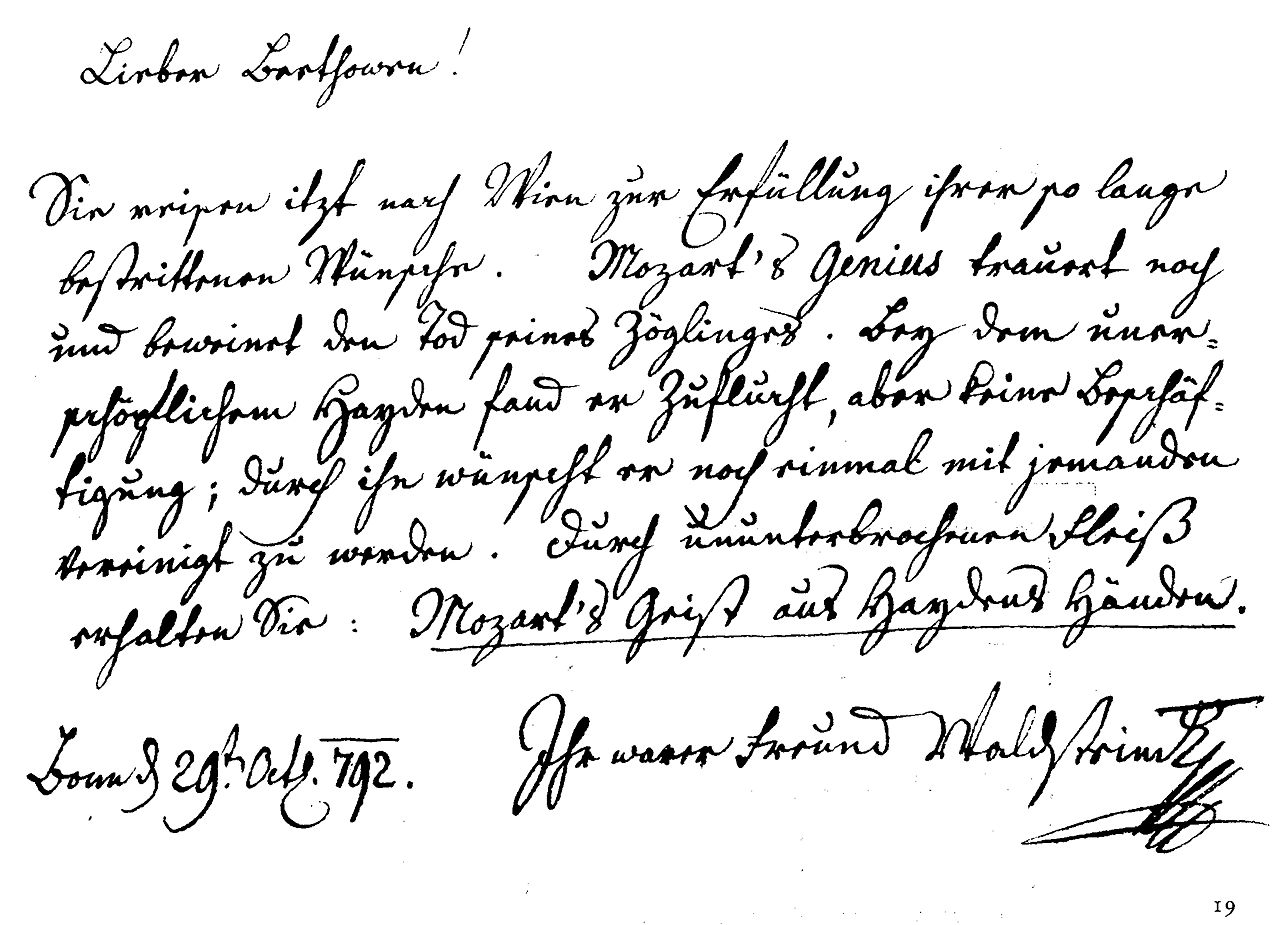 Lieber Beethowen!
Sie reisen itzt nach Wien zur Erfüllung ihrer so lange
bestrittenen Wünsche. Mozart's Genius trauert noch
und beweinet den Tod seines Zöglinges. Bey dem uner=
schöpflichem Hayden fand er Zuflucht, aber keine Beschäf=
tigung; durch ihn wünscht er noch einmal mit jemanden
vereinigt zu werden. Durch ununterbrochenen Fleiß
erhalten Sie: Mozart's Geist aus Haydens Händen.
Ihr warer Freund Waldstein
Bonn d 29t. Oct. 792.
19